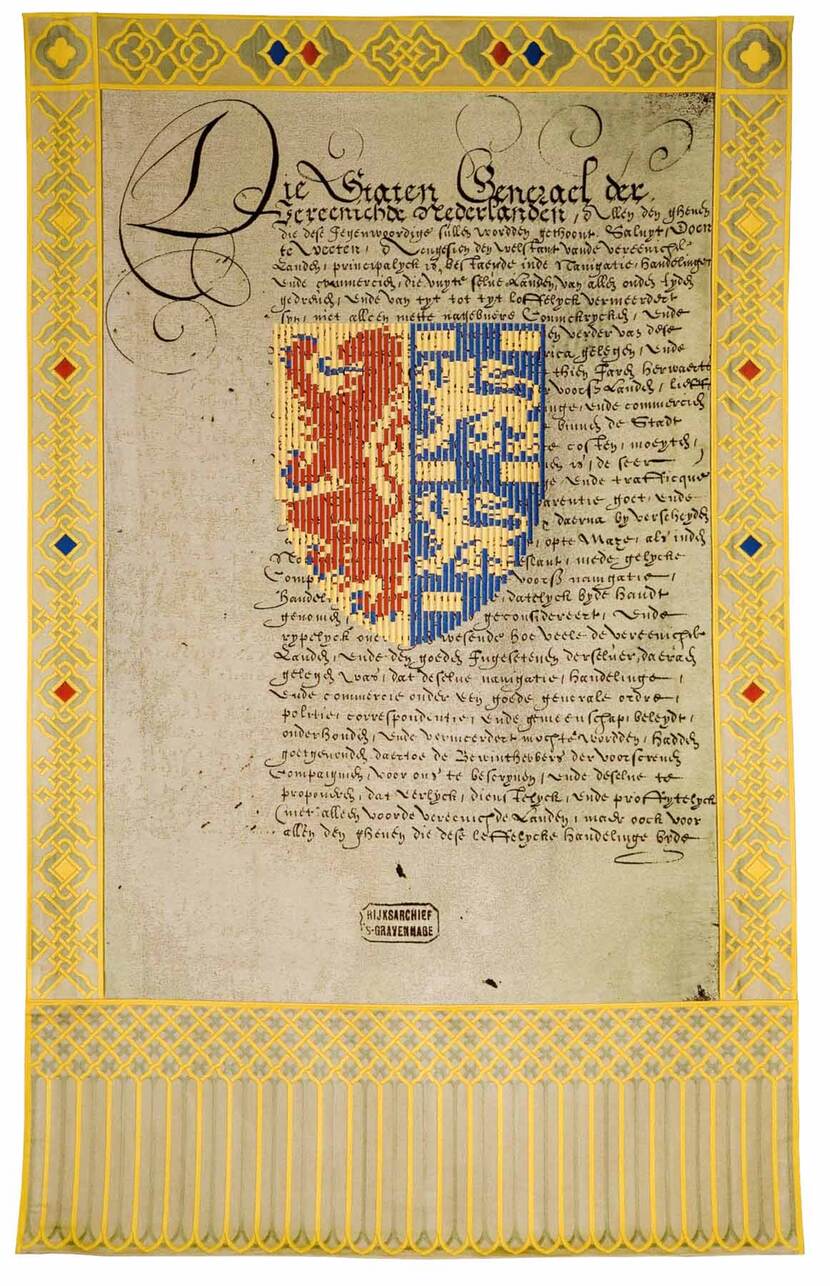 Die Staten Generael der
Vereenichde Nederlanden, Allen den ghenen
die dese Jegenwoordige sullen wordden gethoont, Saluyt, Doen
te weeten, Alsoe den welstant vande vereenichde
Landen, principalyck is bestaende inde Navigatie, handelinge
ende commercien, die vuyte selve Landen, van allen ouden tyden
gedreven, ende van tyt tot tyt loffelyck vermeerdert
syn, niet alleen mette nagebuere Coninckrycken, ende
en verder van dese
rica gelegen, ende
thien Jaren herwaerts
voorsz Landen, lieff
inge, ende commercien
binnen de Stadt
te costen, moeyten,
is, de seer
ge ende trafficque
arentie goet, ende
daerna by verscheyden
opte Maze, als inden
esant, mede gelycke
Comp voorsz navigatie,
handel datelyck byde handt
genomen, geconsidereert, ende
rypelyck over wesende hoe veele de vereenichde
Landen, ende den goeden Ingesetenen derselver, daeraen
gelegen was, dat deselve navigatie, handelinge,
ende commercie onder een goede generale ordre,
politie, correspondentie, ende gemeenschap, beleydt,
onderhouden, ende vermeerdert mochte wordden, hadden
goetgevonden daertoe de Bewinthebbers der voorscreven
Compaignien, voor ons te bescryven, ende deselve te
proponeren, dat eerlyck, dienstelyck, ende proffytelyck
niet alleen voorde vereenichde Landen, maer oock voor
allen den ghenen die dese loffelycke handelinge byde
RIJKSARCHIEF
'S-GRAVENHAGE